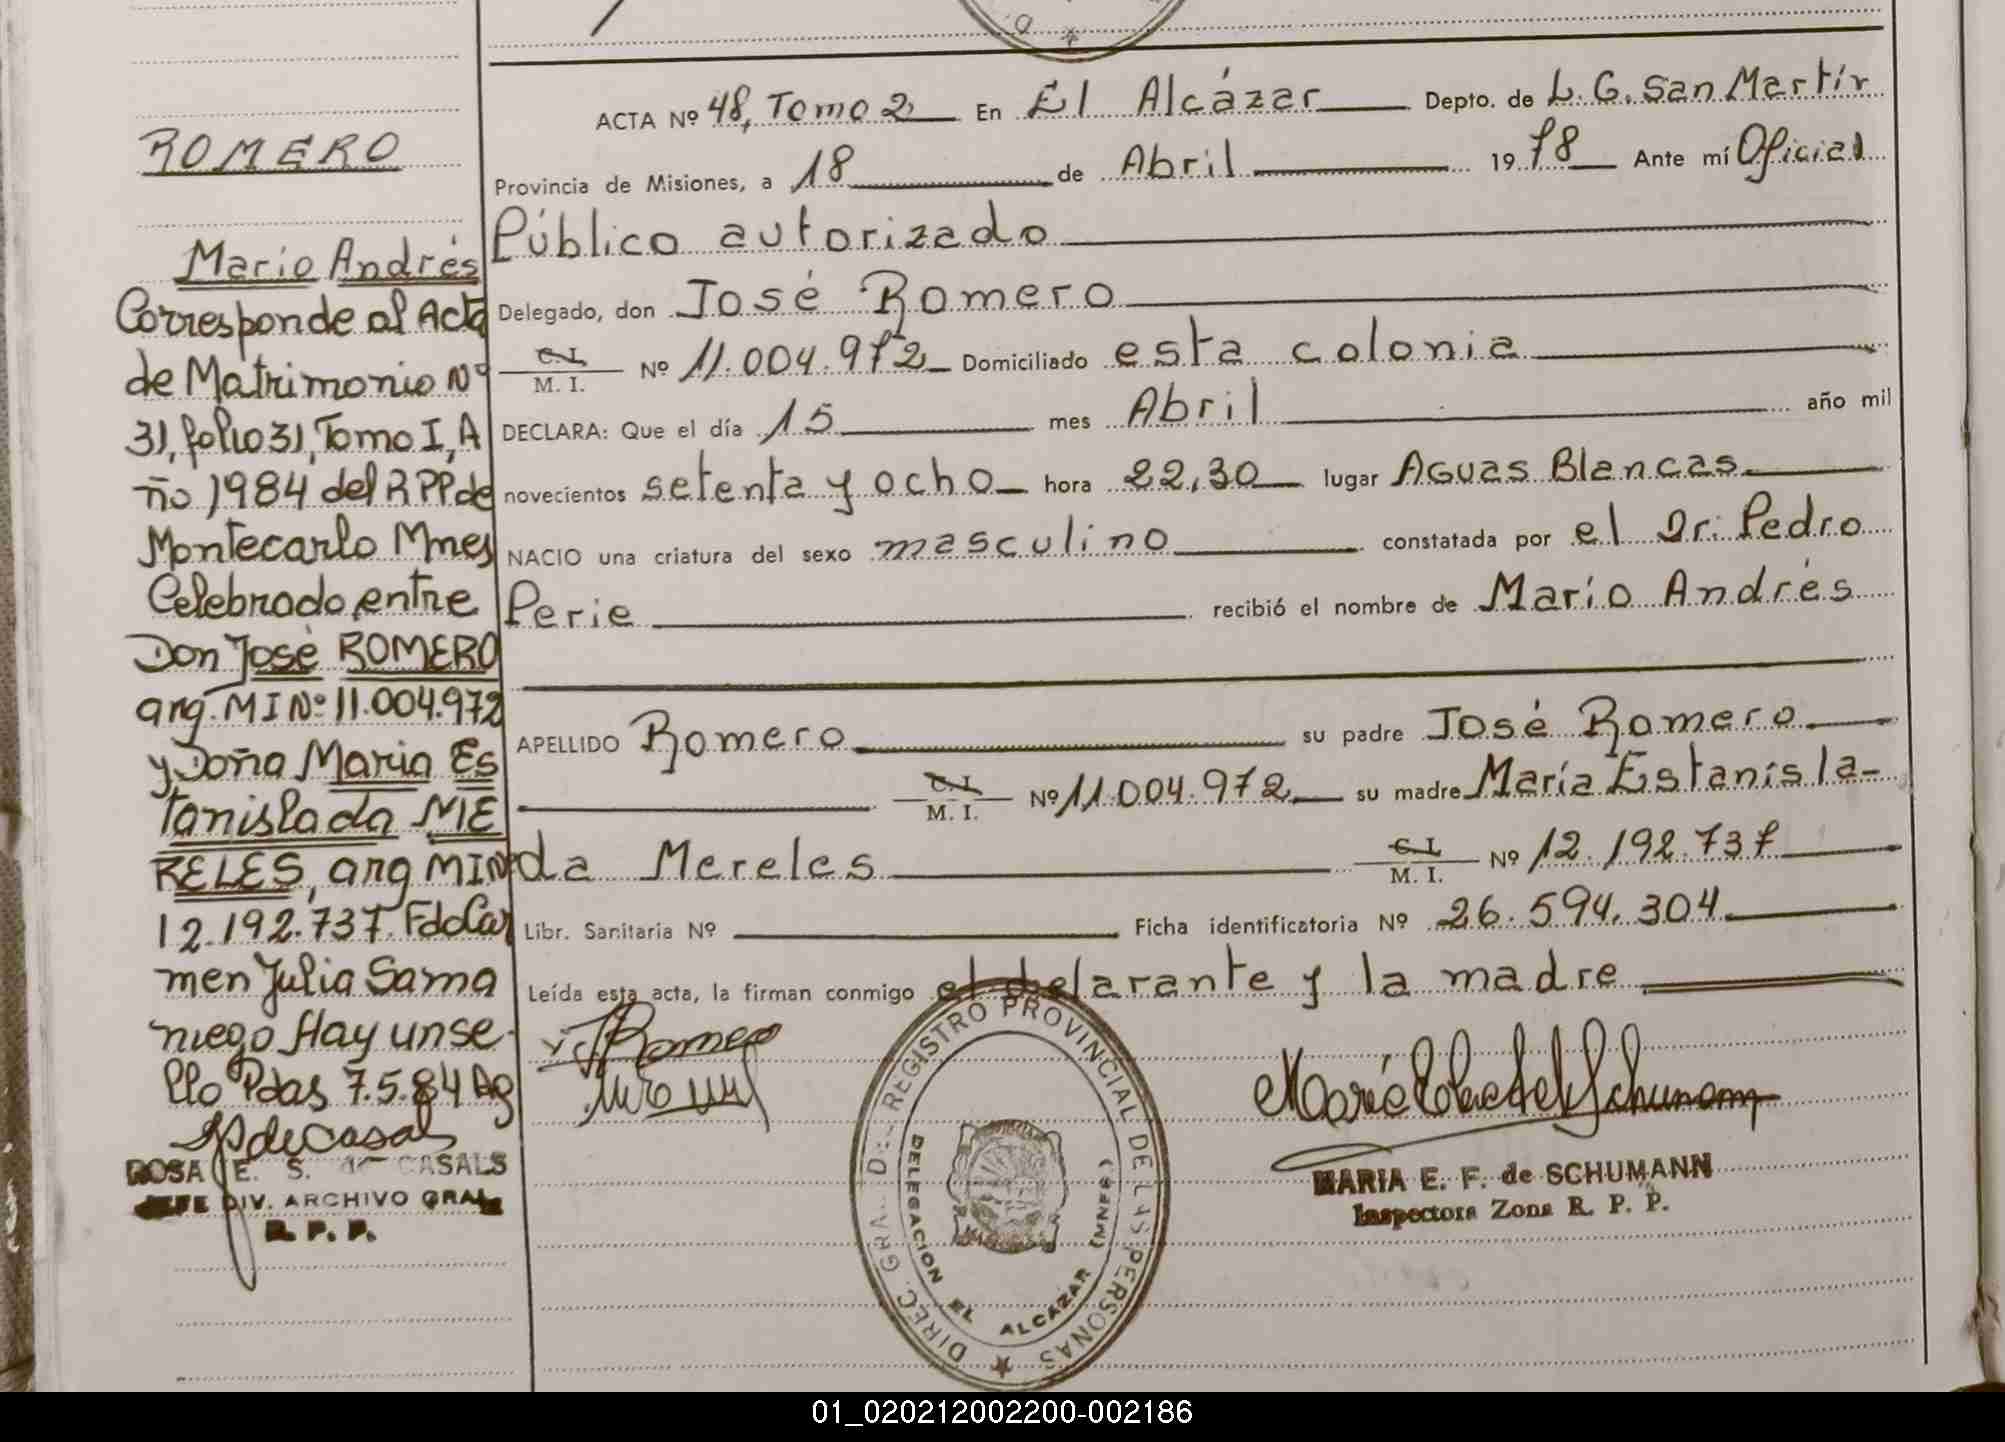 ROMERO
Mario Andrés
Corresponde al Acta
de Matrimonio Nº
31, folio 31, Tomo I, A
ño 1984 del RPP de
Montecarlo Mnes
Celebrado entre
Don José ROMERO
arg. MI Nº 11.004.972
y Doña Maria Es
tanislada ME
RELES, arg MI Nº
12.192.737. Fdo Car
men Julia Sama
niego Hay un se
llo Pdas 7.5.84
ROSA E. S. de CASALS
JEFE DIV. ARCHIVO GRAL
R. P. P.
ACTA Nº 48, Tomo 2 En El Alcázar Depto. de L. G. San Martír
Provincia de Misiones, a 18 de Abril 1978 Ante mí Oficial
Público autorizado
Delegado, don José Romero
C. I. M. I. Nº 11.004.972 Domiciliado esta colonia
DECLARA: Que el día 15 mes Abril año mil
novecientos setenta y ocho hora 22,30 lugar Aguas Blancas
NACIO una criatura del sexo masculino constatada por el Dr. Pedro
Perie recibió el nombre de Mario Andrés
APELLIDO Romero su padre José Romero
C. I. M. I. Nº 11.004.972 su madre María Estanisla-
da Mereles C. I. M. I. Nº 12.192.737
Libr. Sanitaria Nº Ficha identificatoria Nº 26.594.304
Leída esta acta, la firman conmigo el delarante y la madre
JRomeo
DIREC. GRAL. DEL REGISTRO PROVINCIAL DE LAS PERSONAS
DELEGACION EL ALCAZAR (MNES)
MARIA E. F. de SCHUMANN
Inspectora Zona R. P. P.
01_020212002200-002186